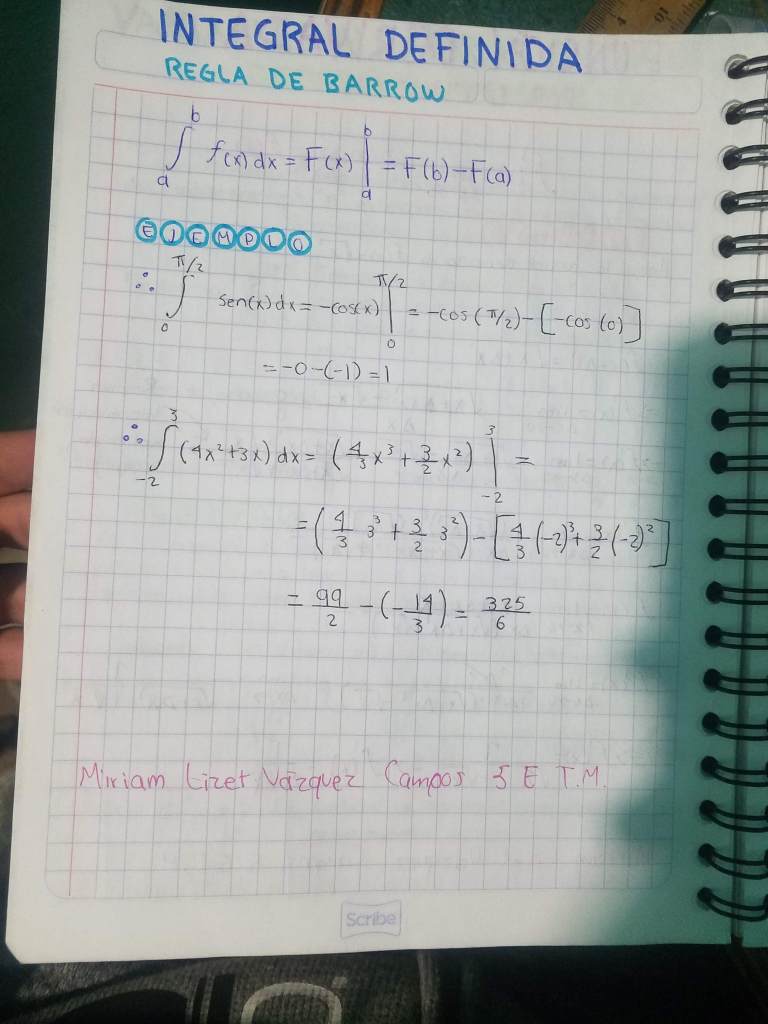 INTEGRAL DEFINIDA
REGLA DE BARROW
∫_a^b f(x) dx = F(x) |_a^b = F(b) - F(a)
EJEMPLO
∴ ∫_0^{π/2} sen(x) dx = -cos(x) |_0^{π/2} = -cos(π/2) - [-cos(0)]
= -0 - (-1) = 1
∴ ∫_{-2}^3 (4x² + 3x) dx = (4/3 x³ + 3/2 x²) |_{-2}^3 =
= (4/3 3³ + 3/2 3²) - [4/3 (-2)³ + 3/2 (-2)²]
= 99/2 - (-14/3) = 325/6
Miriam Lizet Vázquez Campos 5 E T.M.
Scribe